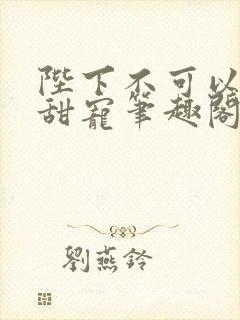 陛下不可以
甜寵筆趣閣
劉燕鈴